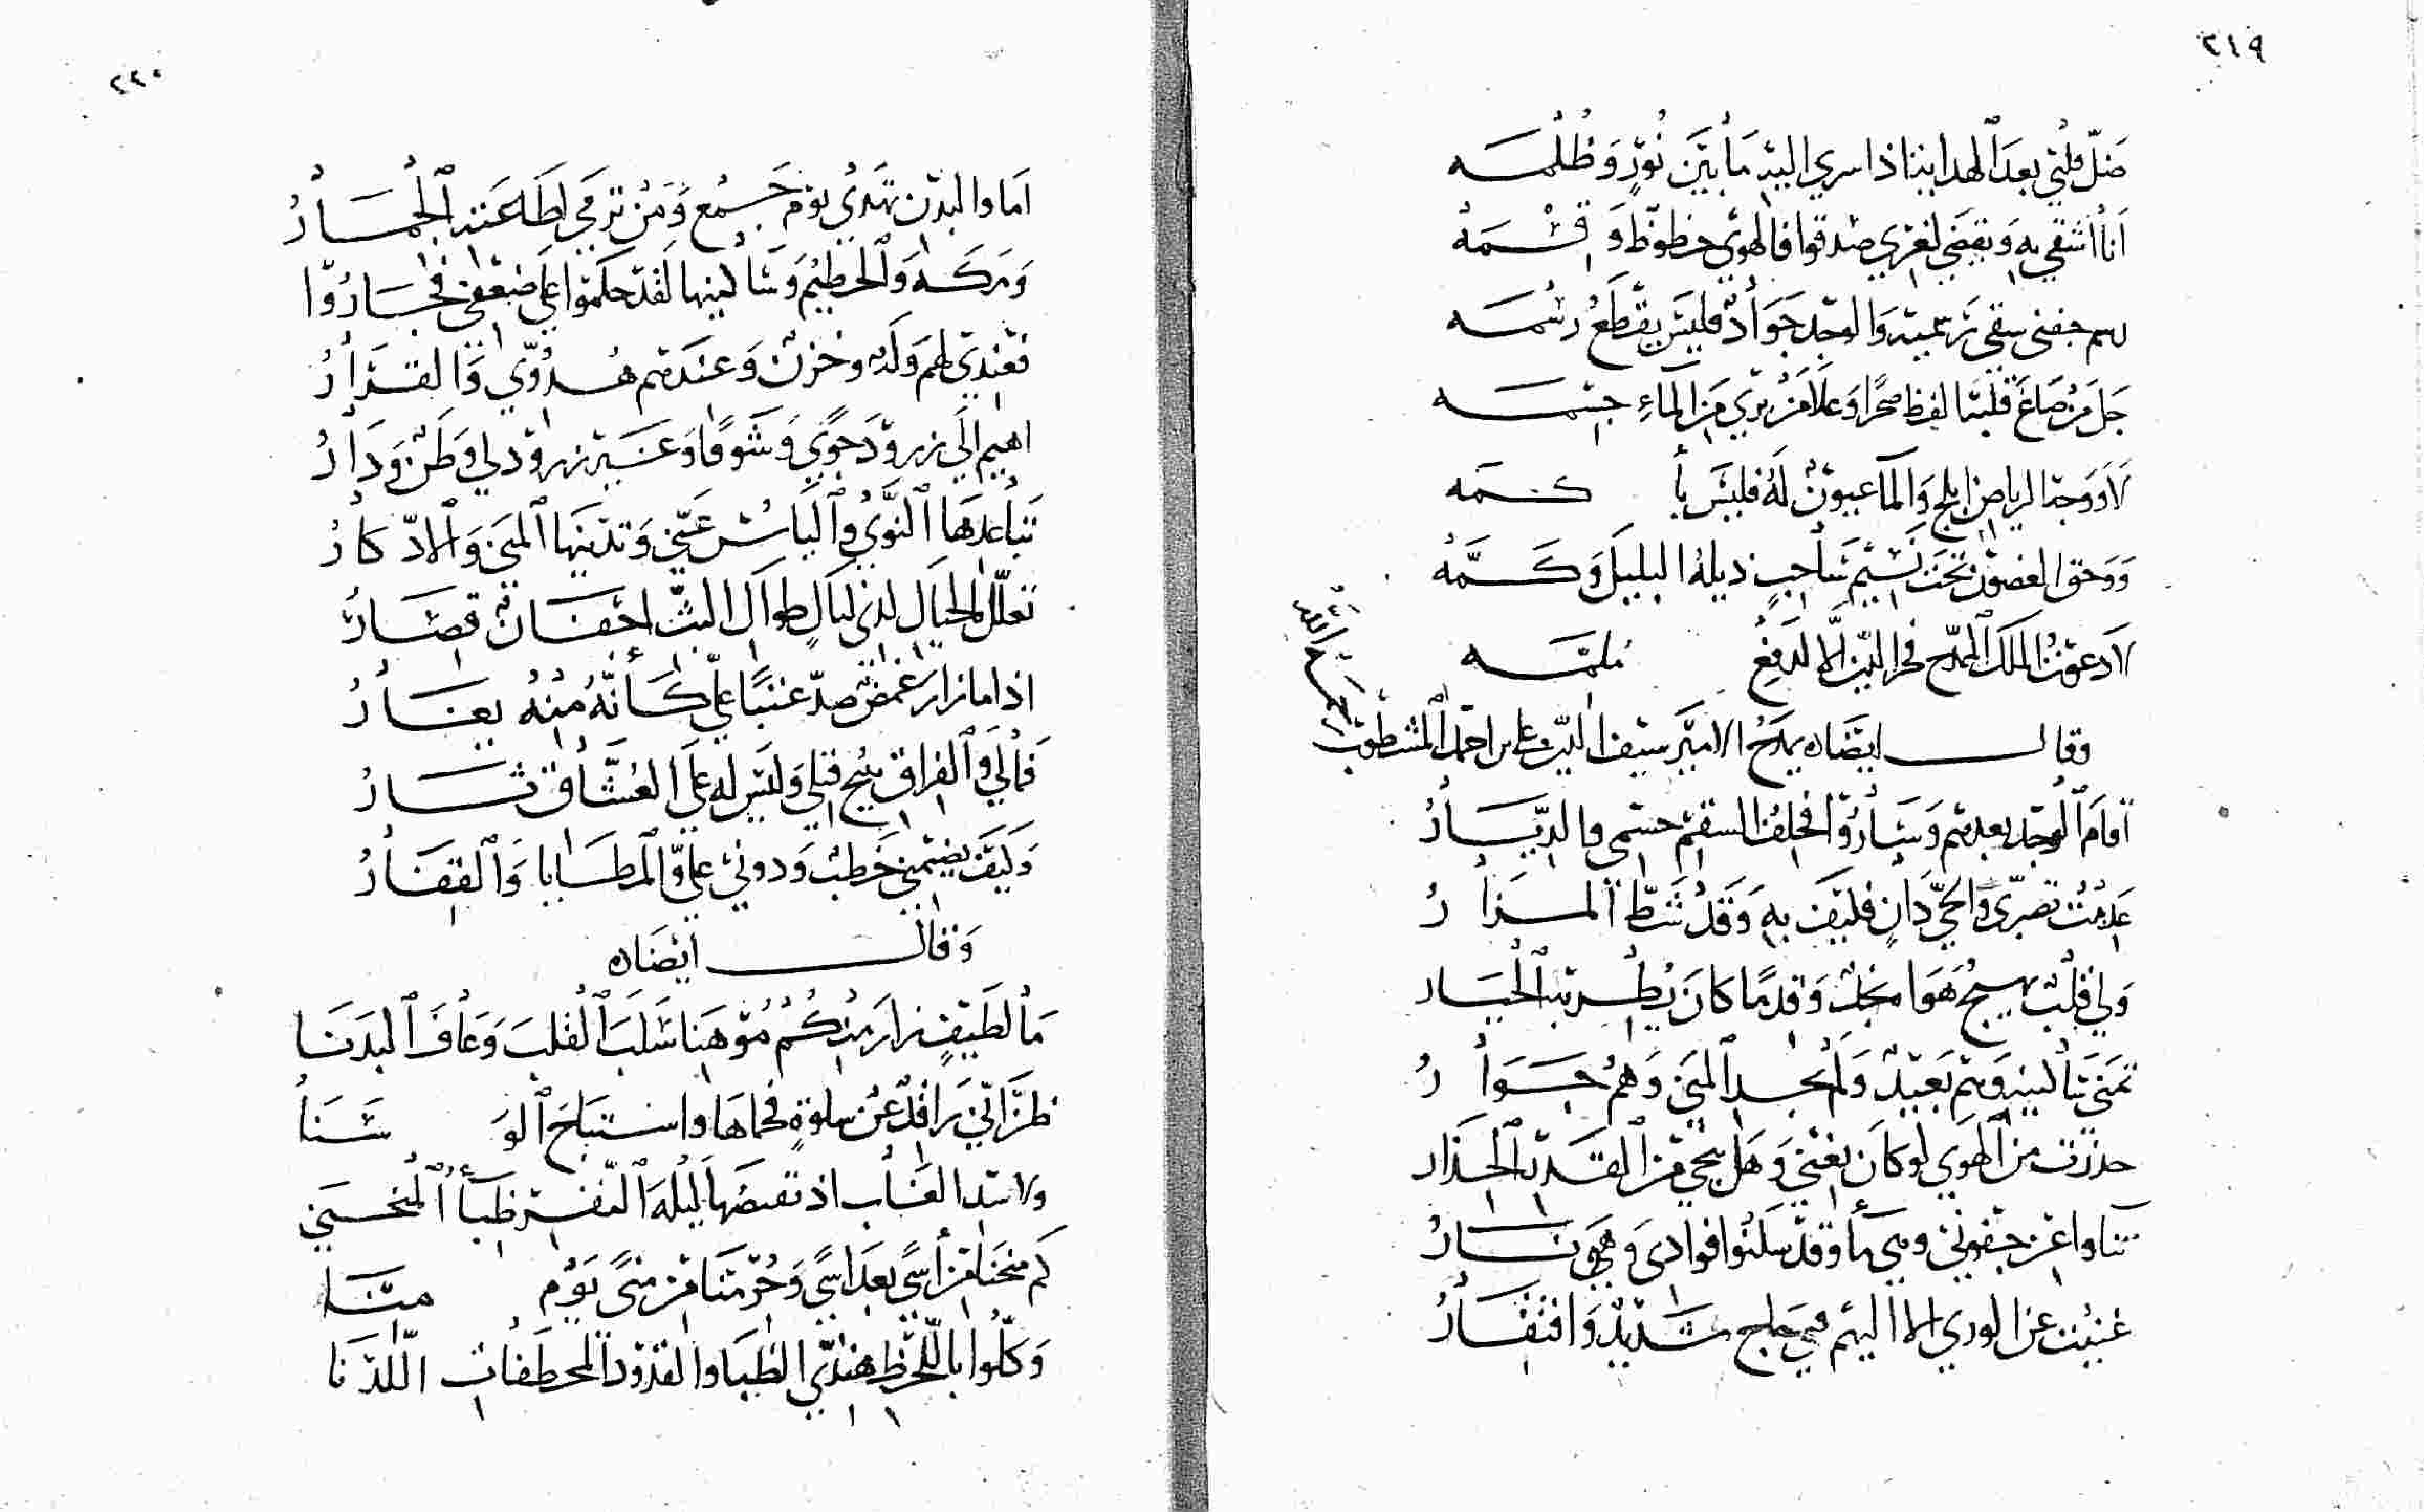 ٢١٩
ضَلّ قلبي بعد الهدا بينا اذا سري اليد مَا بَيْنَ نُوْرٍ وَظُلْمَـه
أنا أشقي به وَيقضَي لغيري صَدقوا فالهوي حظوظ وَ قِسْمَهْ
جفني سقي والوجد جَوَادٌ فليسَ يقطَعُ رسْمَـه
جَلَ مَنْ صَاغَ قلبَه لفظ صخرًا وَعَلَا مَنْ بَرَي مِنَ الماءِ جسْمَـه
لا وَوجه الرياض ابلج وَالمآ عيونٌ لَهُ فليسَ بأ كـمَه
وَوحق الغصون تحت نَسيْم سَاحبٍ ذيلهُ البليلَ وَكُـمَّهْ
لا دعوتُ الملكَ الممدّح فخر الدّين الّا لدفعِ مُلمَّـه
وقالــ ايضًاه يمدَحُ الاميَر سيف الدّين علي بن احمد المشطوب
رحمه الله
أقامَ ٱلوجد بعدهم وَسَارُوْا فخلفُ السقم جسْمي والدّيَـارُ
عَدِمْتُ تصَبّري وَالحيّ دَانٍ فكيفَ بهِ وَقَدْ شَطّ المـزَا رُ
وَلي قلبٌ يهيجُ هَوَا نجدٍ وَقدمًا كان يُطْـربه ٱلخيَـار
تمَني سَاكنيه وَهم بَعيدٌ وَلم يجـد المنَي وَهُمْ جـوَا رُ
حذرت من ٱلهوَي لو كانَ يغني وَهَل ينجي مَنَ ٱلقَدَر ٱلحِذَار
تناوا عن جفوني وهي مآ وقدْ سَكنُوا فوادي وَهيَ نـارُ
غنيت عن الوري الا اليهم فبي حاج شَديدٌ وَافتقَـارُ
٢٢٠
اما والبدْن تهْدي يوْم جَـمْع وَمَنْ ترمَي لطَلعَته ٱلجمَـارُ
وَمَكـه وَٱلحطيْم وَسَاكنيها لَقدْ حكمُوا عليَ ضعْفي فجَـارُوْا
فعنْدي لهم وَلَه وحُزنٌ وَعندهم هُـدُوّي وَالقـرَارُ
اهيم الَي زرودَ جَوًي وَشوقًا وَغَـيْر زرود لي وَطن وَدَارُ
تبَاعدهَا ٱلنّوَي وٱليَاسُ عنّي وَتدنيها المنَي وَٱلادّ كَارُ
تعلّل بالخيَال لدي ليَالٍ طوال البثّ اجفـان قصَـارُ
اذا ما زار غمضٌ صدّ عَتبًا عليّ كَـأنّهُ منهُ يغَـارُ
فمالي وَٱلفراق يبيح قتلي وَليس له عليَ العُشّاق ثـارُ
وَكيفَ يضيمني خَطبٌ وَدوني عليّ وَٱلمطـايا وَٱلقفَـارُ
وَقالــ أيضًاه
مَا لطَيفٍ زارَ منكُمْ مَوْهِنا سَلَبَ ٱلقلبَ وَعافَ ٱلبدَنَـا
ظنَّ أنّي رَاقدٌ عَنْ سلوةٍ فحماهَا واستَبَاحَ ٱلوَ سَـنَا
اذ تقنصَها ليلَة النّفـر ظبَآ المنحـني
كَم منحْنا من أسًي بعدَ اسًي وَحُرمْنا من منًي يَوْم منَـا
وَكلُوا باللّحظ هندِيّ الظبَا والقدود المخطفات اللّدْ نا